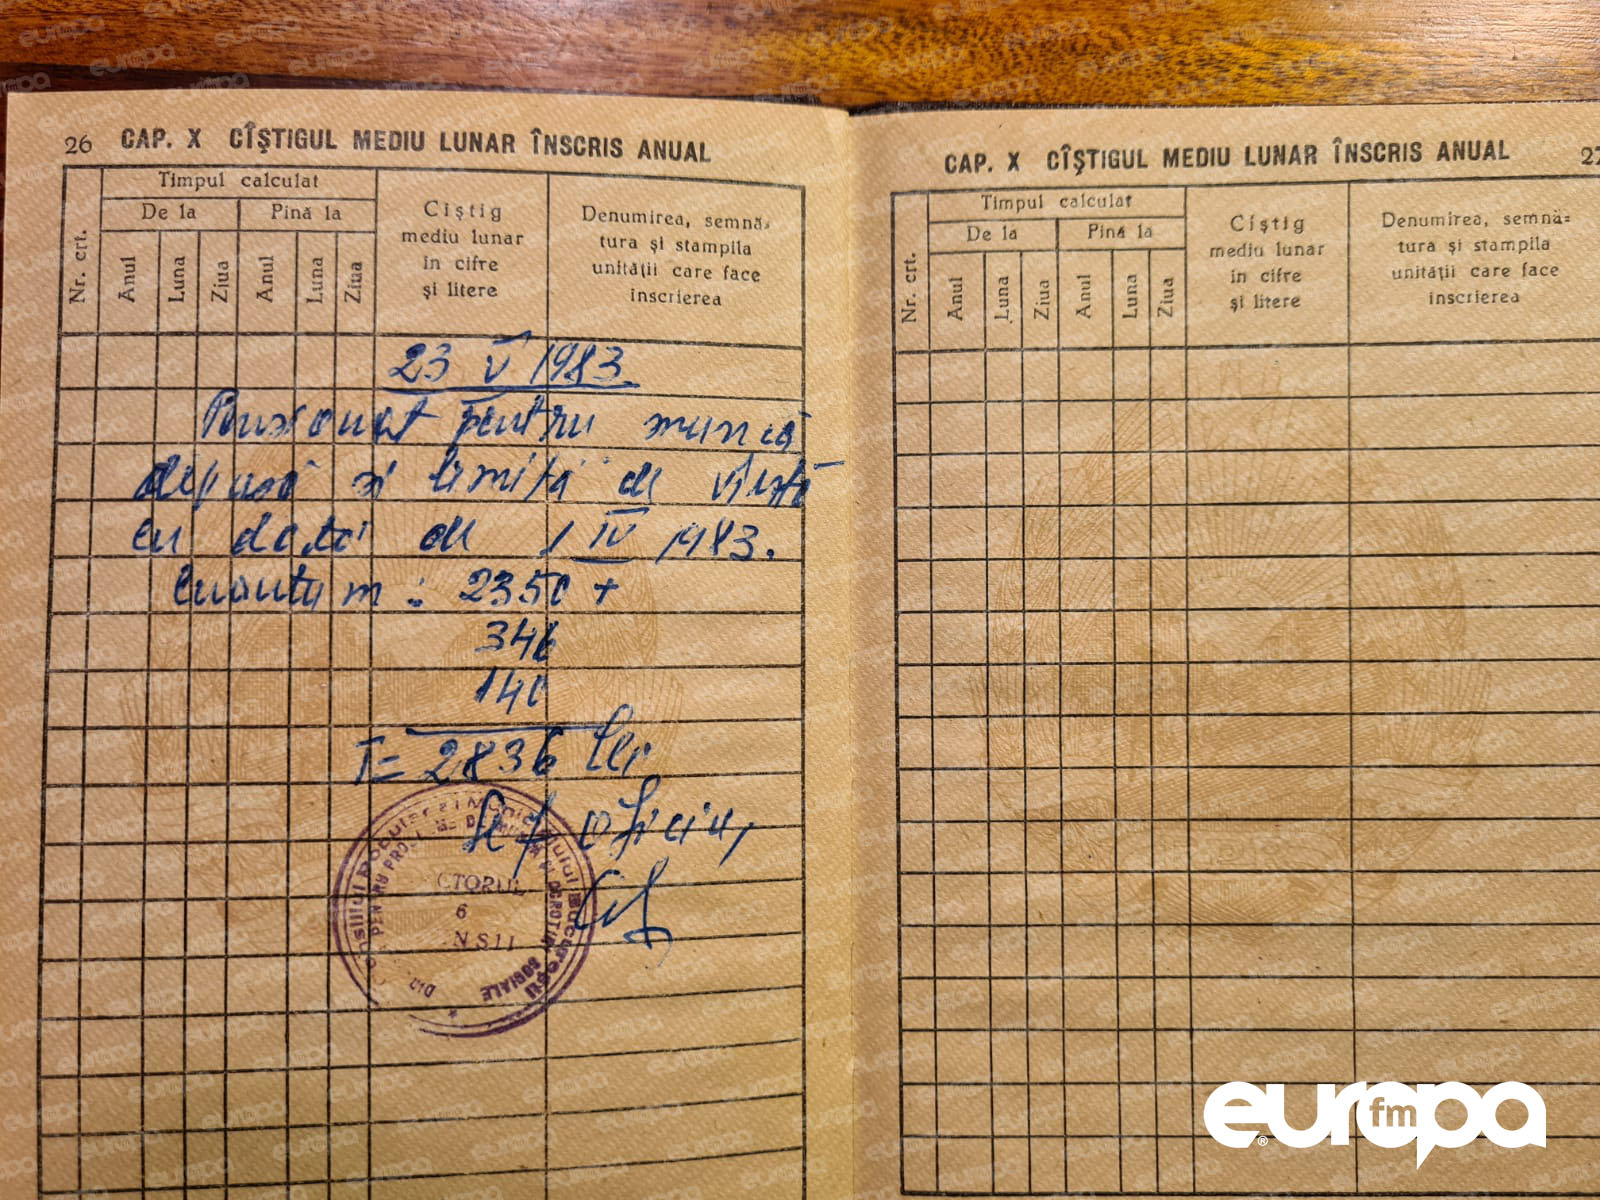 26 CAP. X CÎŞTIGUL MEDIU LUNAR ÎNSCRIS ANUAL
Nr. crt.
Timpul calculat
De la
Pînă la
Anul
Luna
Ziua
Anul
Luna
Ziua
Cîştig
mediu lunar
în cifre
şi litere
Denumirea, semnă=
tura şi stampila
unităţii care face
înscrierea
23 V 1983
Pensionat pentru muncă
depusă si limită de vîrstă
cu data de 1 IV 1983.
Cuantum : 2350 +
346
140
T= 2836 lei
Sef oficiu,
Consiliul Popular al Municipiului Bucureşti
SOCIALE
6
CAP. X CÎŞTIGUL MEDIU LUNAR ÎNSCRIS ANUAL 27
Nr. crt.
Timpul calculat
De la
Pînă la
Anul
Luna
Ziua
Anul
Luna
Ziua
Cîştig
mediu lunar
în cifre
şi litere
Denumirea, semnă=
tura şi stampila
unităţii care face
înscrierea
europa fm